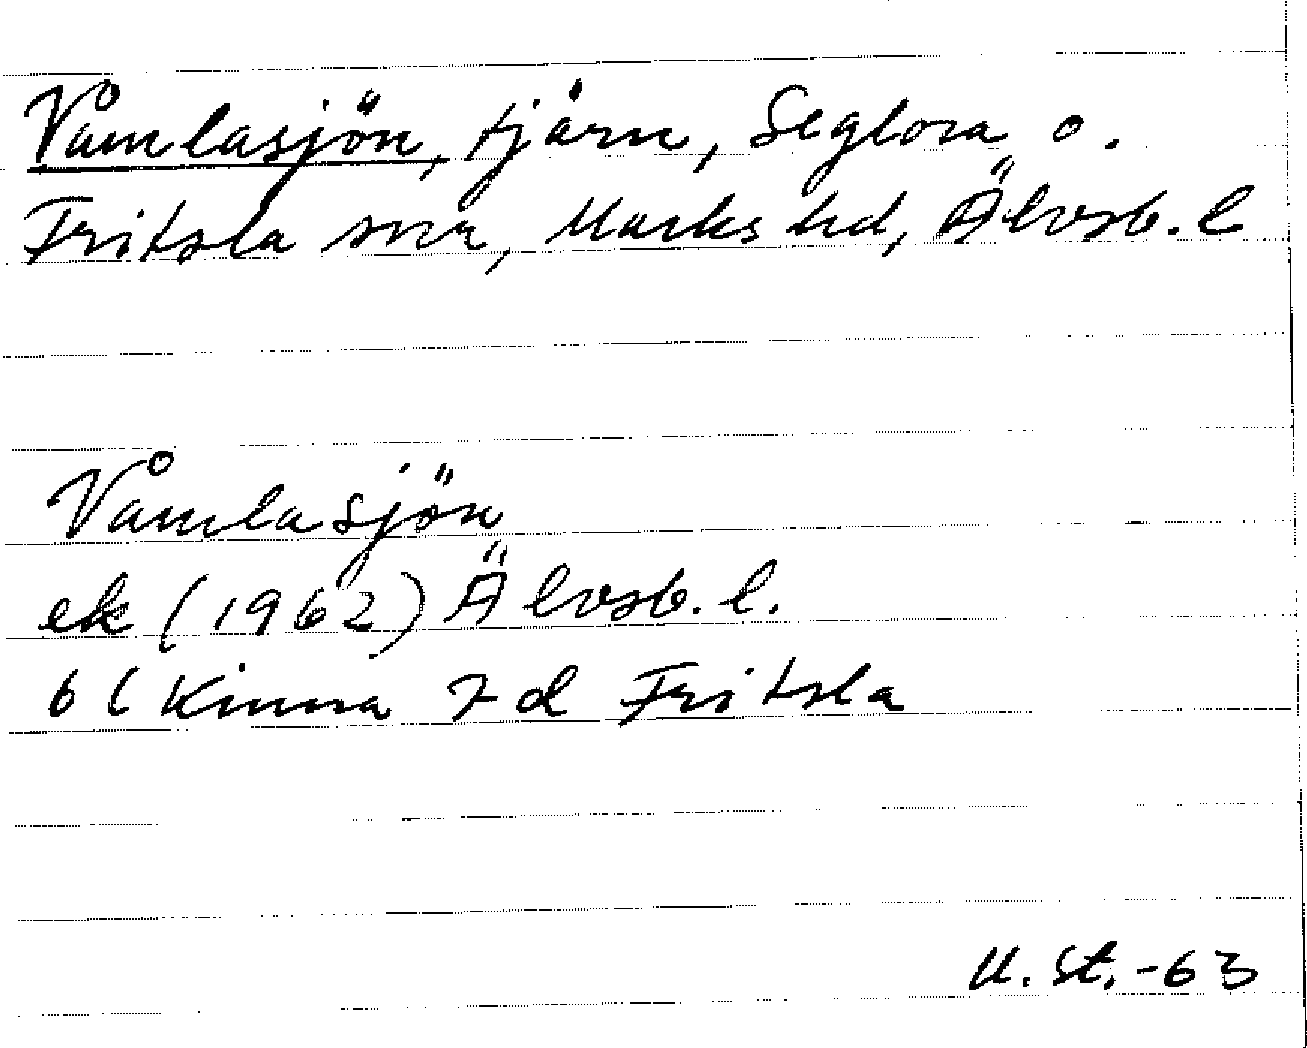 Våmlasjön, tjärn, Seglora o.
Fritsla snr, Marks hd, Älvsb. l
Våmlasjön
ek (1962) Älvsb. l.
6 C Kinna 7 d Fritsla
U. St. -63